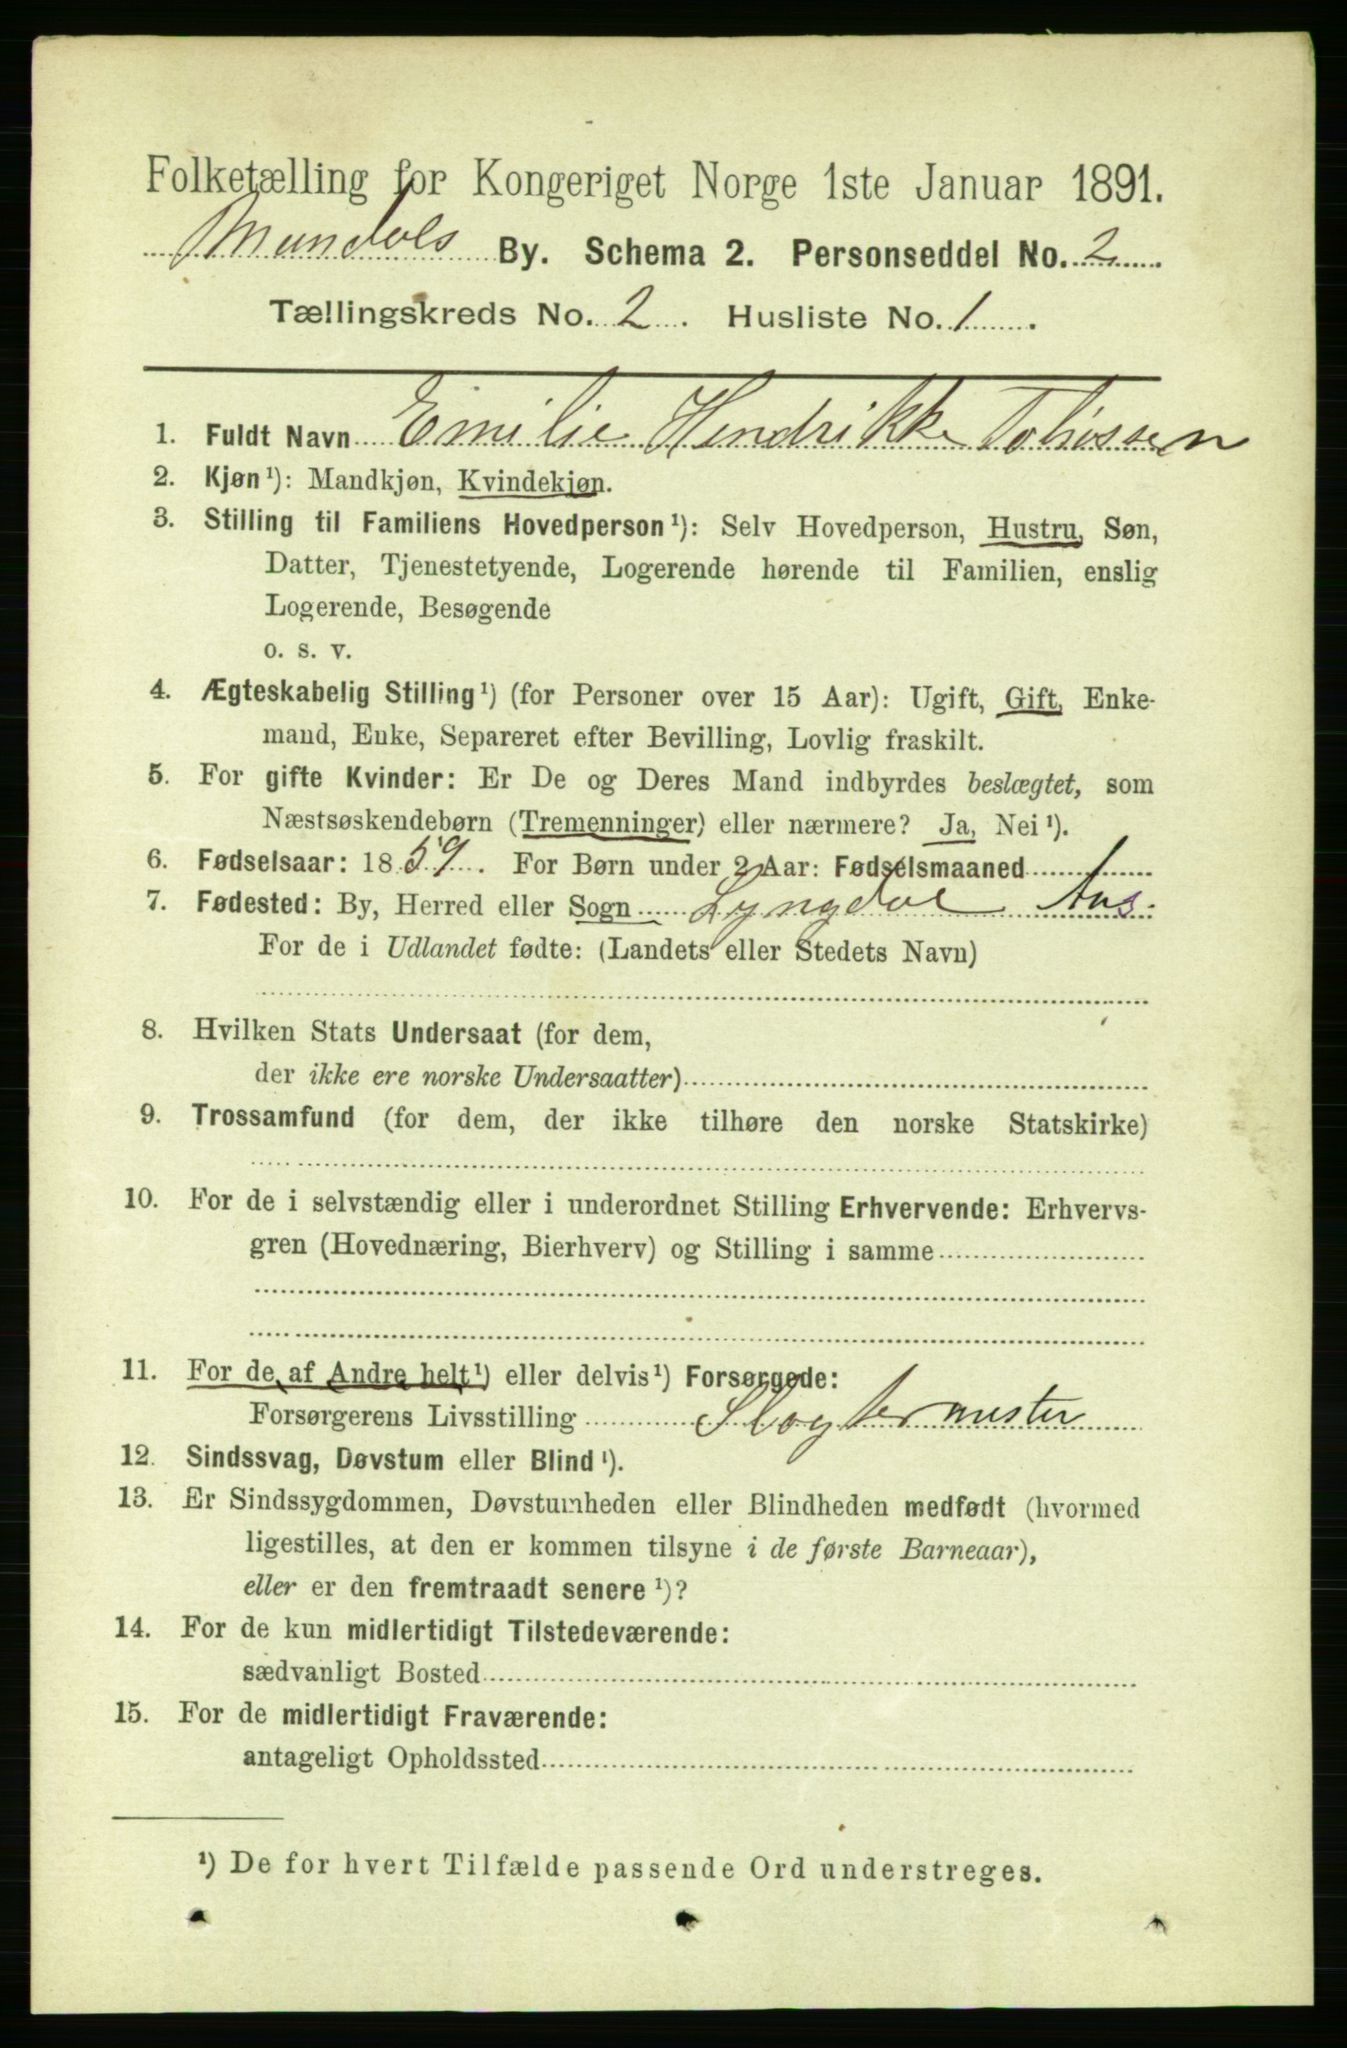 Folketælling for Kongeriget Norge 1ste Januar 1891.
Mandals By. Schema 2. Personseddel No. 2
Tællingskreds No. 2. Husliste No. 1.
1. Fuldt Navn Emilie Hendrikke Tobiassen
2. Kjøn ¹): Mandkjøn, Kvindekjøn.
3. Stilling til Familiens Hovedperson ¹): Selv Hovedperson, Hustru, Søn,
Datter, Tjenestetyende, Logerende hørende til Familien, enslig
Logerende, Besøgende
o. s. v.
4. Ægteskabelig Stilling ¹) (for Personer over 15 Aar): Ugift, Gift, Enke-
mand, Enke, Separeret efter Bevilling, Lovlig fraskilt.
5. For gifte Kvinder: Er De og Deres Mand indbyrdes beslægtet, som
Næstsøskendebørn (Tremenninger) eller nærmere? Ja, Nei ¹).
6. Fødselsaar: 1859. For Børn under 2 Aar: Fødselsmaaned
7. Fødested: By, Herred eller Sogn Lyngdal
For de i Udlandet fødte: (Landets eller Stedets Navn)
8. Hvilken Stats Undersaat (for dem,
der ikke ere norske Undersaatter)
9. Trossamfund (for dem, der ikke tilhøre den norske Statskirke)
10. For de i selvstændig eller i underordnet Stilling Erhvervende: Erhvervs-
gren (Hovednæring, Bierhverv) og Stilling i samme
11. For de af Andre helt ¹) eller delvis ¹) Forsørgede:
Forsørgerens Livsstilling Slagtermester
12. Sindssvag, Døvstum eller Blind ¹).
13. Er Sindssygdommen, Døvstumheden eller Blindheden medfødt (hvormed
ligestilles, at den er kommen tilsyne i de første Barneaar),
eller er den fremtraadt senere ¹)?
14. For de kun midlertidigt Tilstedeværende:
sædvanligt Bosted
15. For de midlertidigt Fraværende:
antageligt Opholdssted
¹) De for hvert Tilfælde passende Ord understreges.